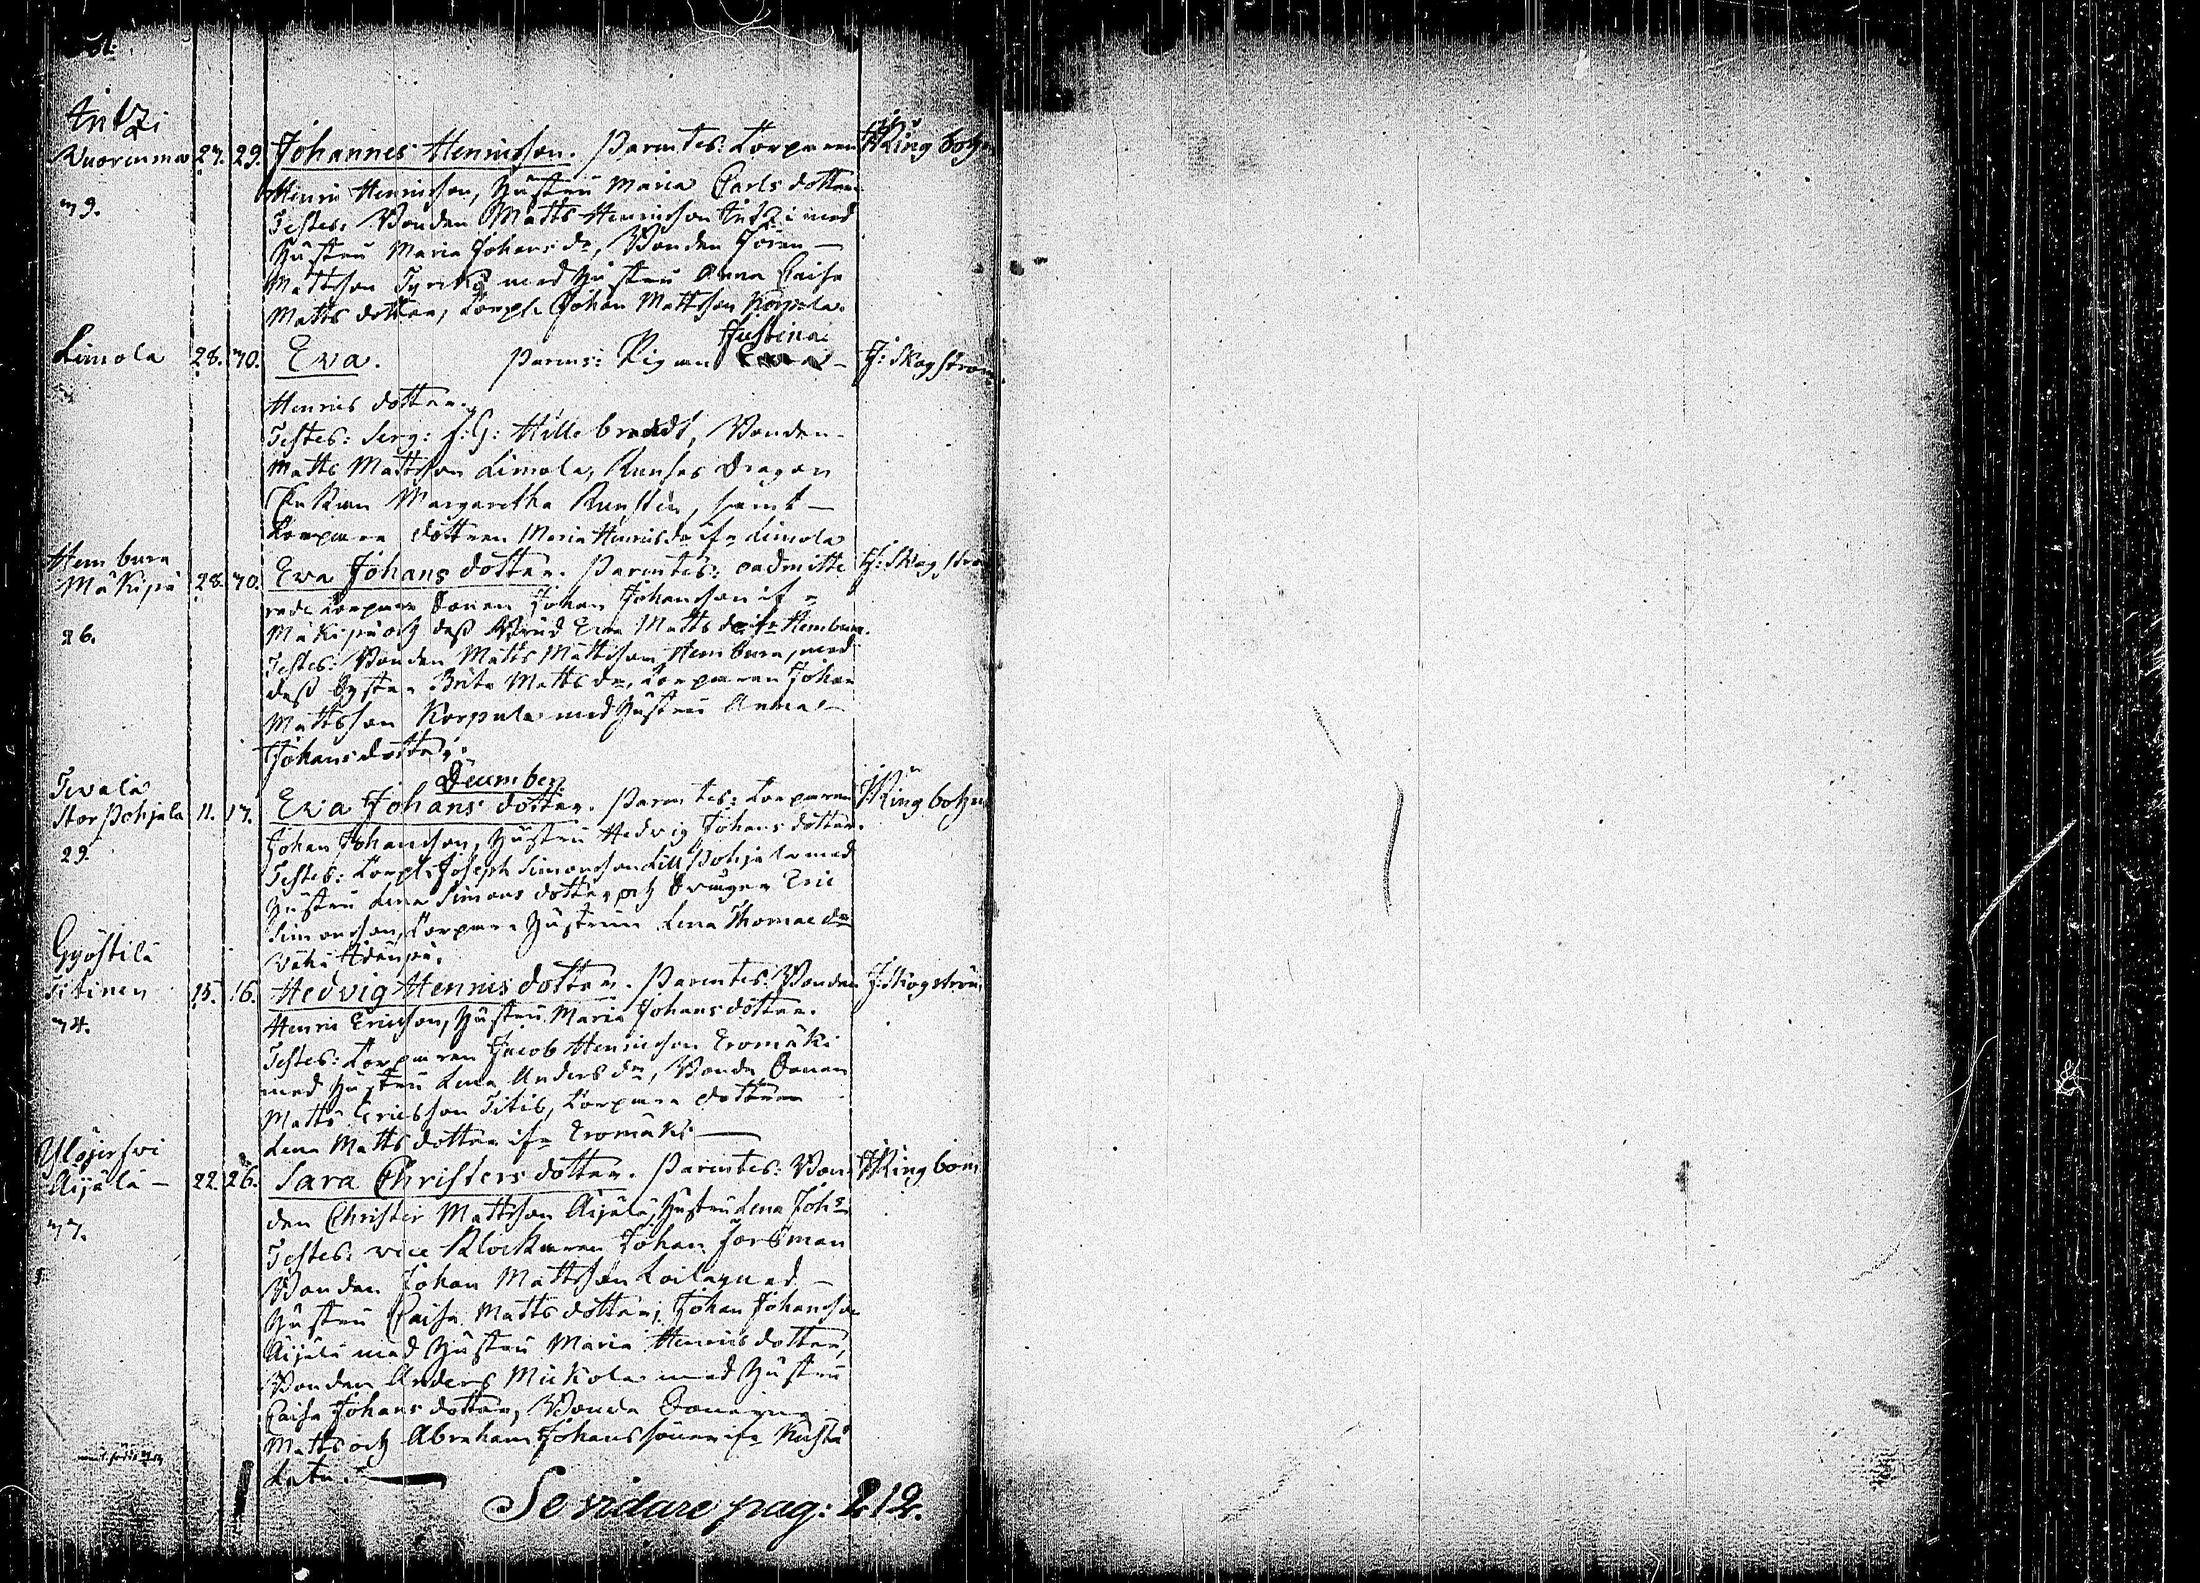 Antzi
Wuorenma 27. 29. Johannes Henricsson. Parentes: Torparen J Ringbohm
Henric Henricsson, Hustru Maria Carls dotter
39. Testes: Bonden Matts Henricsson Antzi med
Hustru Maria Johans dr, Bonden Jöran
Mattsson Tyrckö med Hustru Anna Caisa
Matts dotter, Torp: Johan Mattsson Korpula.
Justina
Limola 28. 30. Eva. Parens: Pigan J: Skogström
Henrics dotter.
Testes: Serg: J: G: Hillebrandt, Bonden
Matts Mattsson Limola, Dragon
Enkan Margaretha Runstén, samt
Torpare dottren Maria Henrics dr ifr Limola
Hembura
Mäkipä 28. 30. Eva Johans dotter. Parentes: admitte J: Skogström
rade Torpare Sonen Johan Johansson ifr
26. Mäkipä och dess Brud Eva Matts dr ifr Hembura.
Testes: Bonden Matts Mattsson Hembura, med
dess Syster Brita Matts dr, Torparen Johan
Mattsson Korpula med Hustru Anna
Johansdotter.
December.
Tevala
Stor Pohjala 11. 17. Eva Johans dotter. Parentes: Torparen J Ringbohm
29. Johan Johansson, Hustru Hedvig Johans dotter.
Testes: Torp: Joseph Simonsson Lill Pohjala med
Hustru Lena Simons dotter, och Drängen Eric
Simonsson, Torpare Hustrun Lena Thomae dr
Gyöstilä
Titinen 15. 16. Hedvig Henrics dotter. Parentes: Bonden J: Skogström
34. Henric Ericsson, Hustru Maria Johans dotter.
Testes: Torparen Jacob Henricsson Eromäki
med Hustru Lena Anders dr, Bonde Sonen
Matts Ericsson Titis, Torpare dottren
Lena Matts dotter ifr Eromäki
Ylöjerfvi
Äijälä 22. 26. Sara Christers dotter. Parentes: Bon J Ringbom
den Christer Mattsson Äijälä, Hustru Lena Joh:
37. Testes: vice Klockaren Johan Forsman
Bonden Johan Mattsson Loila med
Hustru Caisa Matts dotter; Johan Johansson
Äijälä med Hustru Maria Henrics dotter,
Bonden Anders Mickola med Hustru
Caisa Johans dotter, Bonde Sönerna
Matts och Abraham Johans söner ifr Kusta
Se vidare pag: 212.